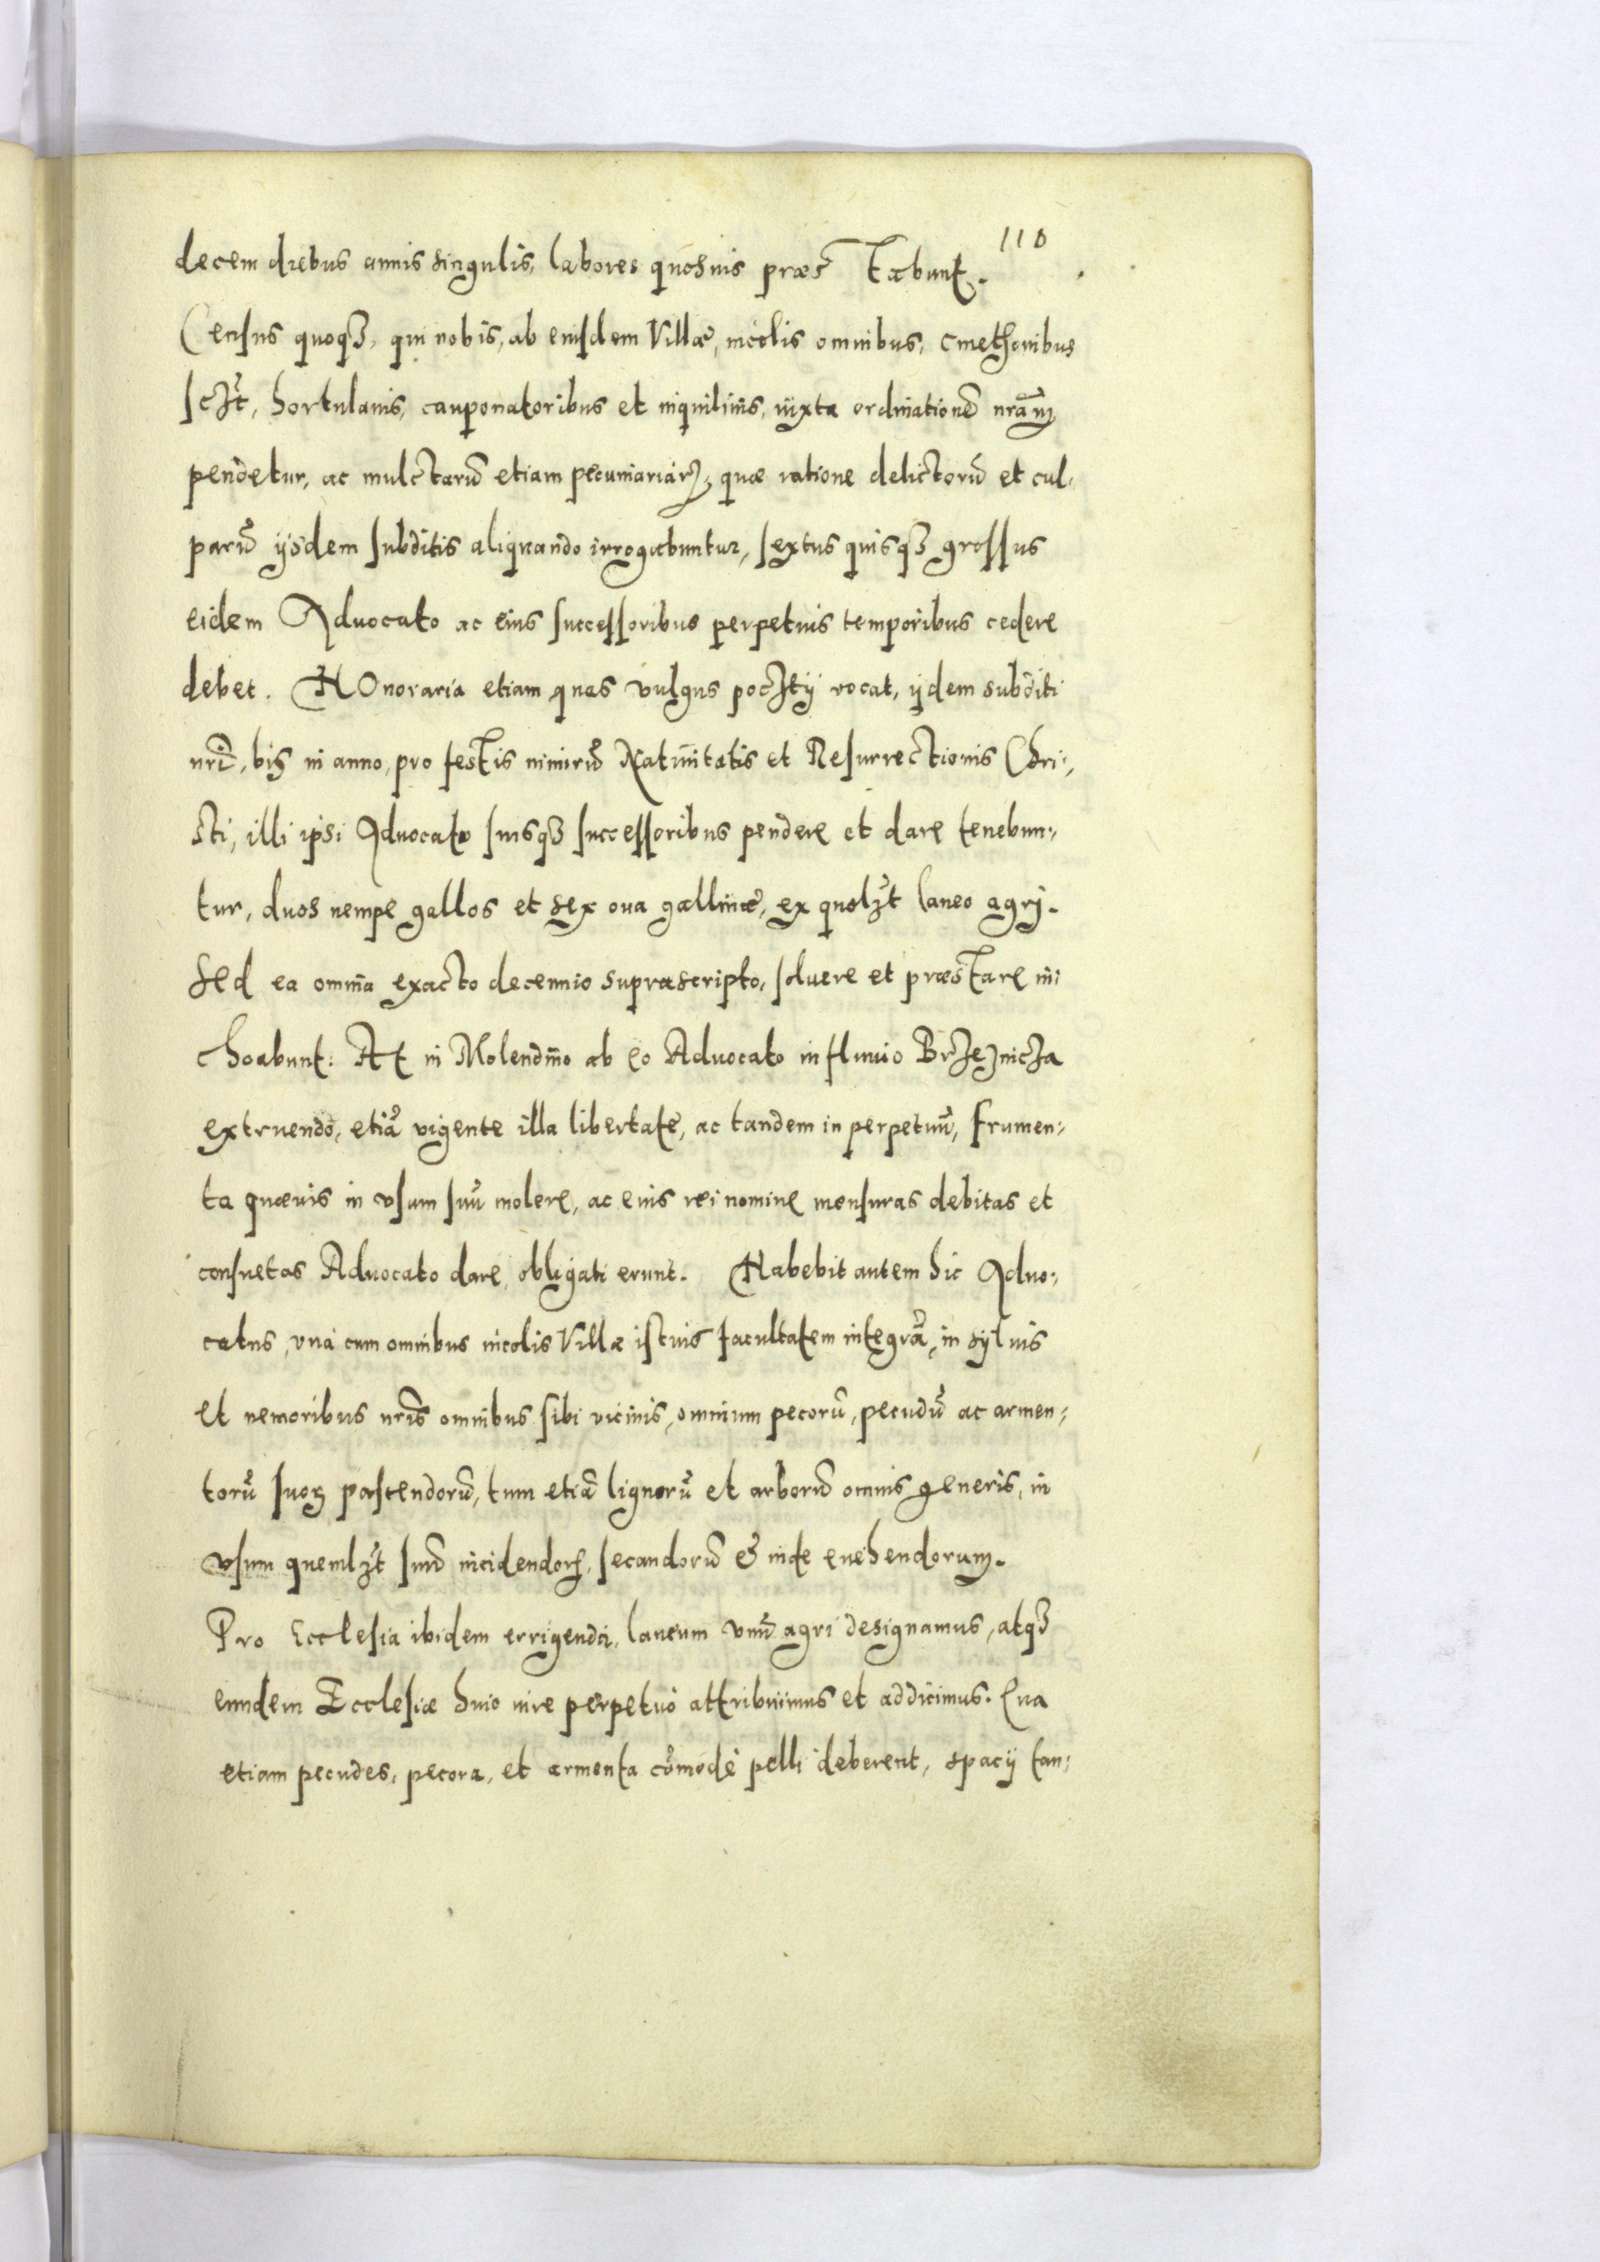 110
decem diebus annis singulis, labores quosuis præstabunt.
Census quoqȝ, qui nobis, ab eiusdem Villæ, incolis omnibus, cmethonibus
sczt, hortulanis, cauponatoribus et inquilinis, iuxta ordinationē nram̄
pendetur, ac mulctarū etiam pecuniariarꝝ, quæ ratione delictorū et cul,
parū ijsdem subditis aliquando irrogabuntur, sextus quisqȝ grossus
eidem Aduocato ac eius successoribus perpetuis temporibus cedere
debet. HOnoraria etiam quæ vulgus poczty vocat, ijdem subditi
nri̅, bis in anno, pro festis nimirū Natiuitatis et Resurrectionis Chri:,
sti, illi ipsi Aduocato suisqȝ successoribus pendere et dare tenebun:,
tur, duos nempe gallos et sex oua gallinæ, ex quolzt laneo agrj.
Sed ea omnia exacto decennio supræscripto, soluere et præstare in:
choabunt. At in Molendino ab eo Aduocato in fluuio Brzeznicza
extruendo, etiā vigente illa libertate, ac tandem in perpetuū, frumen:,
ta quæuis in vsum suū molere, ac eius rei nomine mensuras debitas et
consuetas Aduocato dare, obligati erunt. Habebit autem hic Aduo:,
catus, vnà cum omnibus incolis Villæ istius facultatem integrā, in syluis
et nemoribus nris̄ omnibus sibi vicinis, omnium pecorū, pecudū ac armen:,
torū suoꝝ pascendorū, tum etiā lignorū et arborū omnis generis, in
vsum quemlzt suū incidendorꝝ, secandorū & inde euehendorum.
Pro Ecclesia ibidem errigenda, laneum vnū agri designamus, atqȝ
eundem Ecclesiæ huic iure perpetuó attribuimus et addicimus. Qua
etiam pecudes, pecora, et armenta cōmodè pelli deberent, spacij tan:,